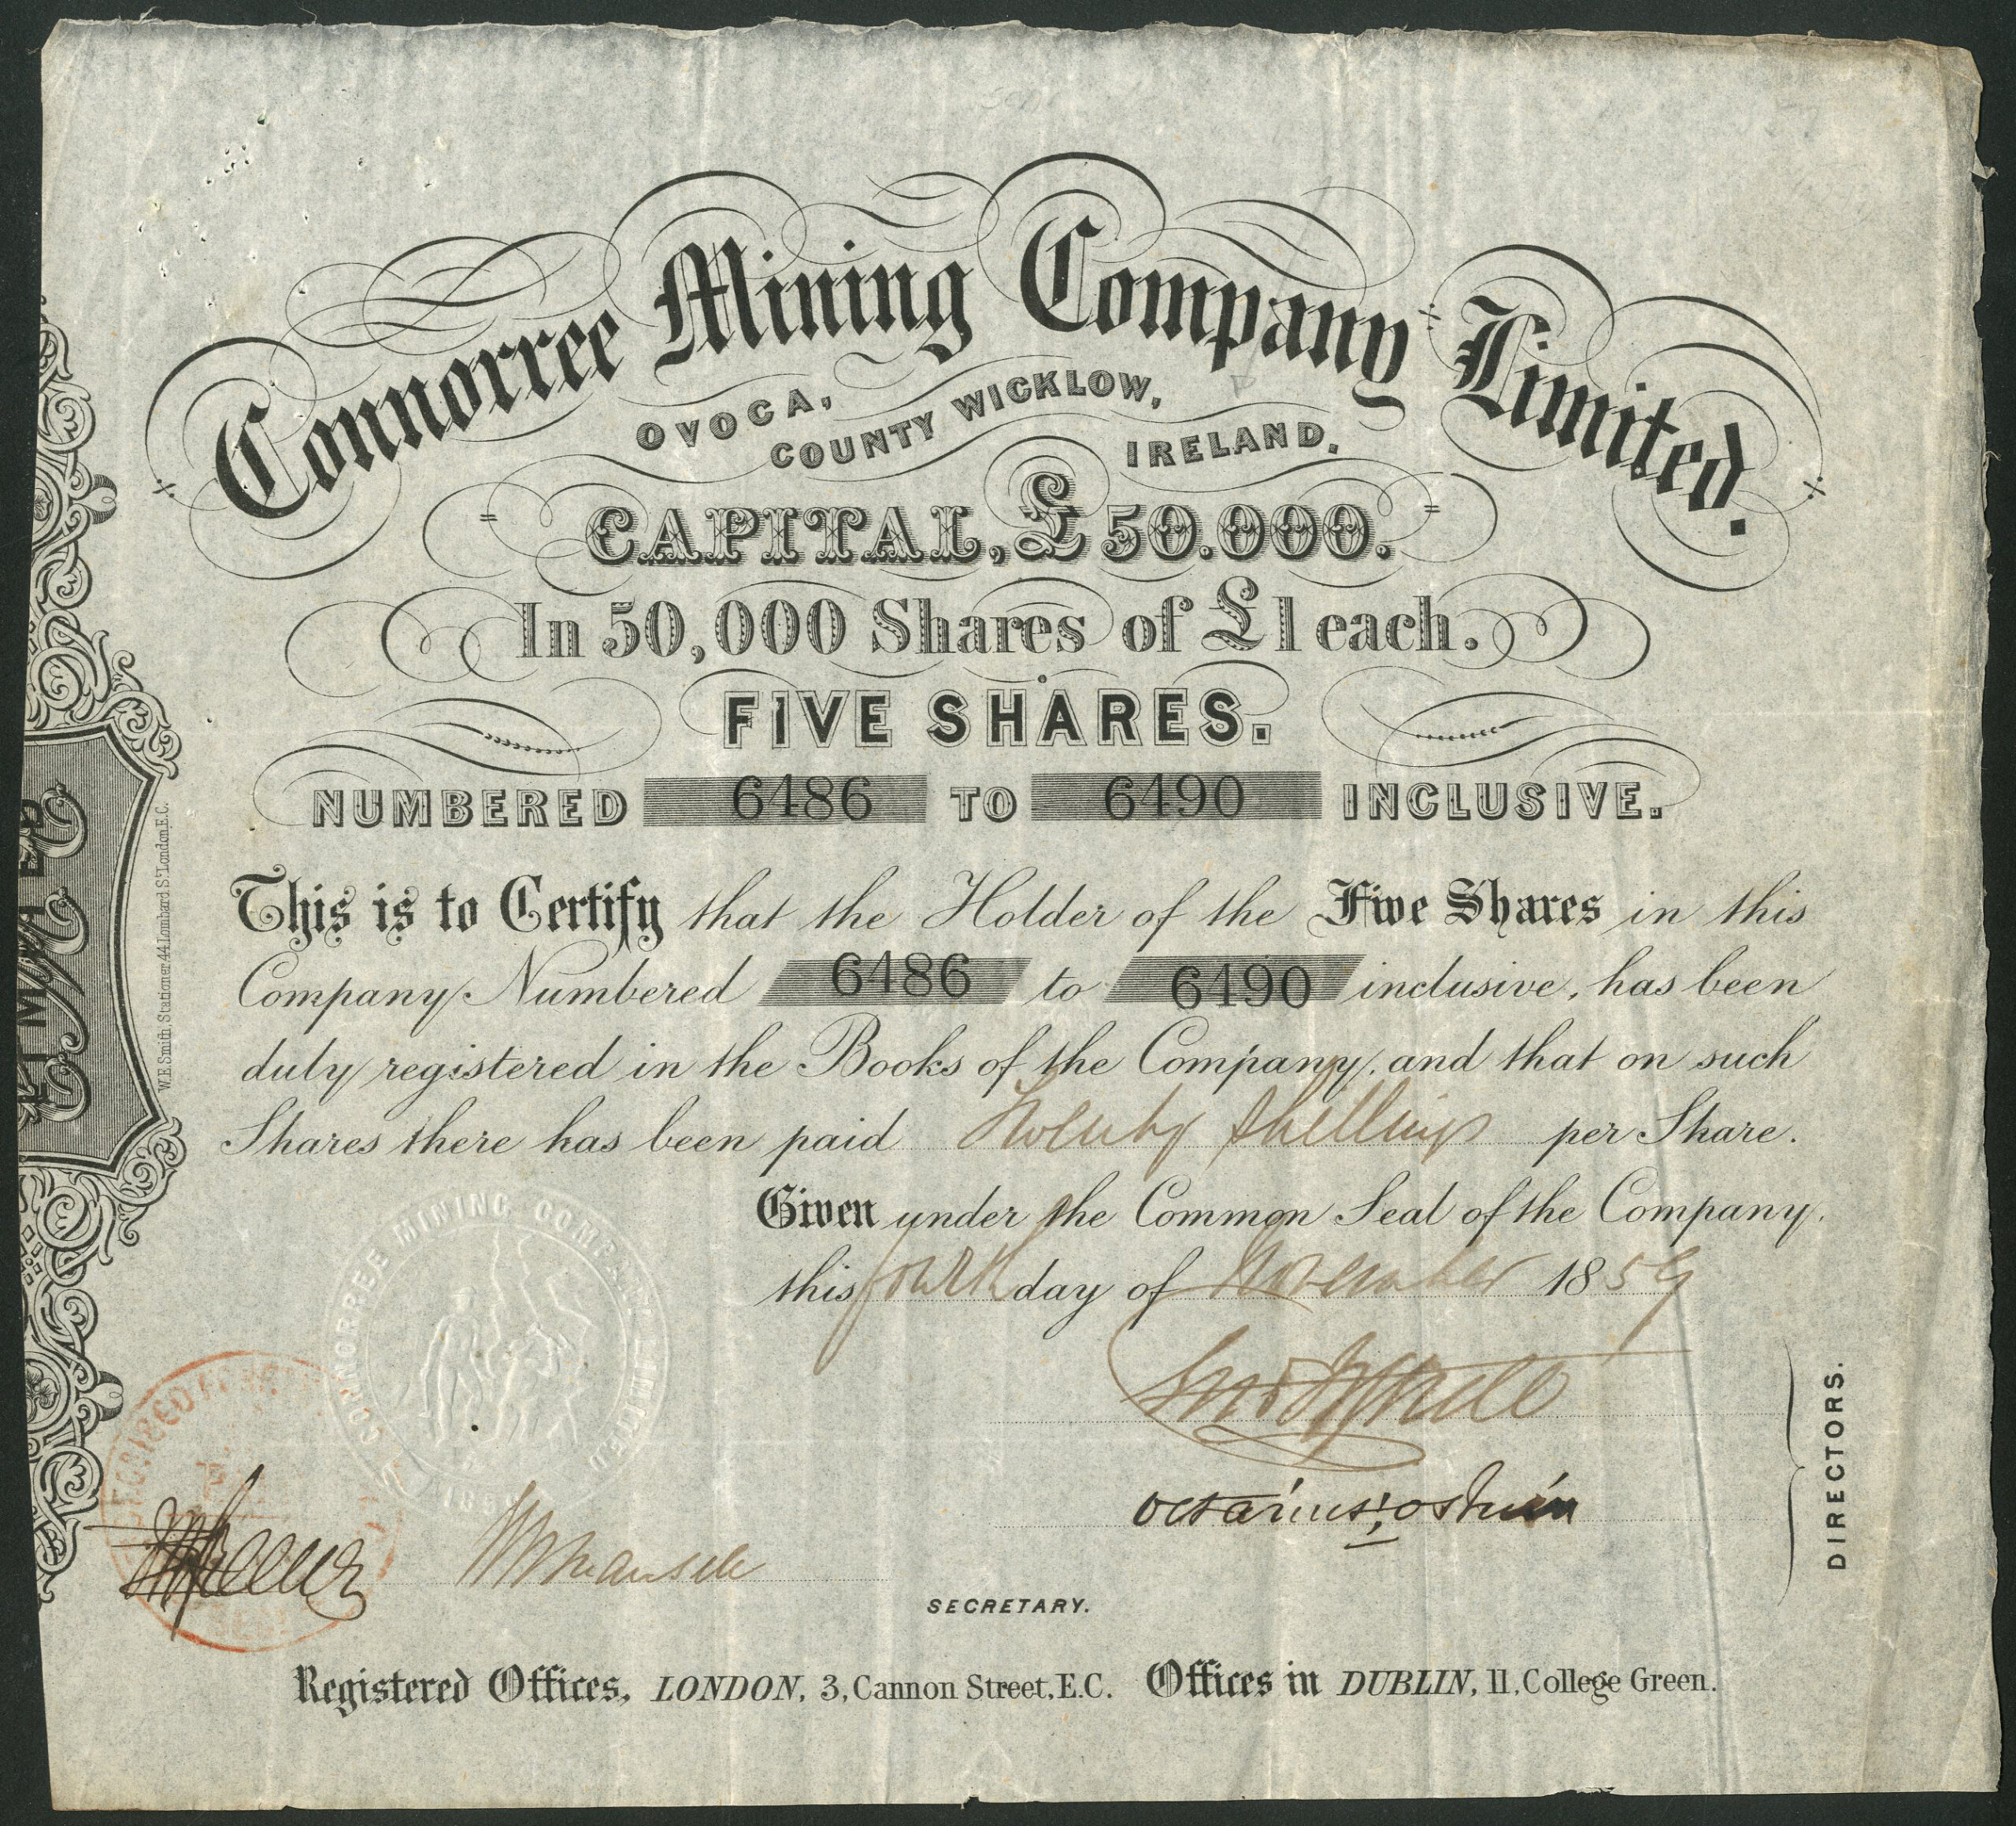 Connorree Mining Company Limited.
OVOCA,
COUNTY WICKLOW,
IRELAND.
CAPITAL, £50.000.
In 50,000 Shares of £1 each.
FIVE SHARES.
NUMBERED 6486 TO 6490 INCLUSIVE.
This is to Certify that the Holder of the Five Shares in this
Company Numbered 6486 to 6490 inclusive, has been
duly registered in the Books of the Company, and that on such
Shares there has been paid Twenty Shillings per Share.
Given under the Common Seal of the Company,
this fourth day of November 1859
CONNORREE MINING COMPANY LIMITED
DIRECTORS.
SECRETARY.
Registered Offices, LONDON, 3, Cannon Street, E.C. Offices in DUBLIN, 11, College Green.
W.E. Smith Stationer 44 Lombard St. London, E.C.